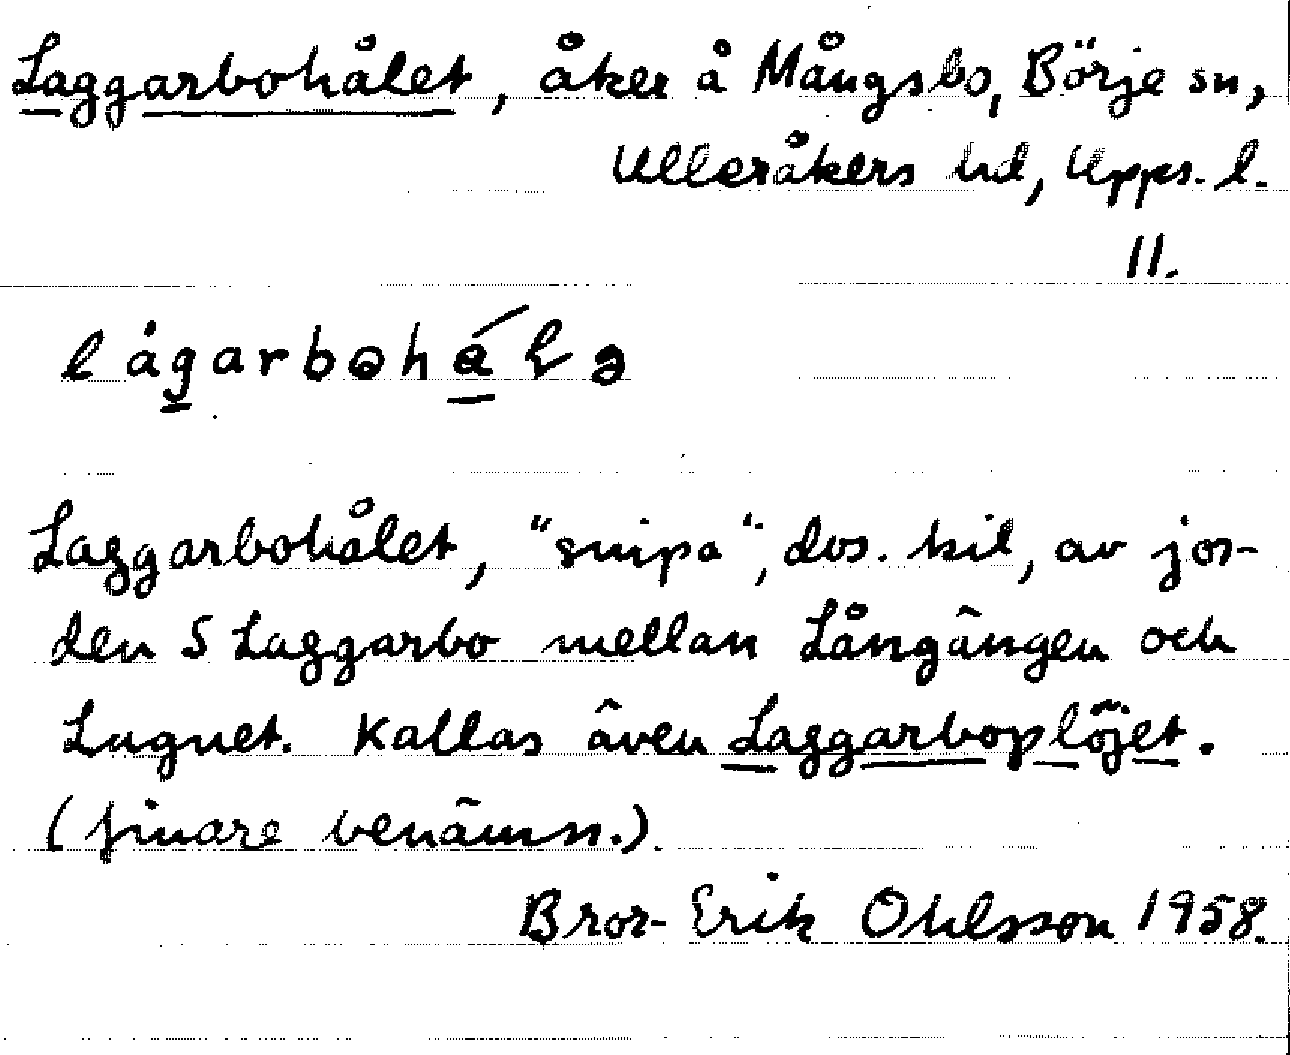 Laggarbohålet, åker å Mångsbo, Börje sn,
Ulleråkers hd, Upps. l.
11.
Laggarbohålet, "snipa", dvs. kil, av jor-
den S Laggarbo mellan Långängen och
Lugnet. Kallas även Laggarboplöjet.
(finare benämn.).
Bror-Erik Ohlsson 1958.